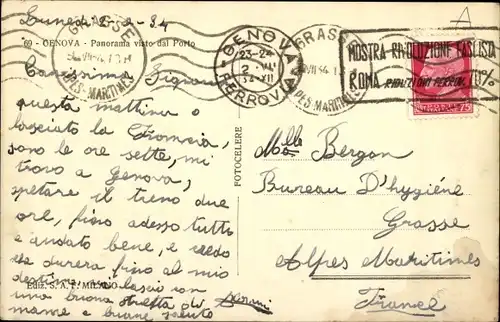 Lunedì 2-4-34
69 - GENOVA - Panorama visto dal Porto
Carissima Signora
questa mattina o
lasciato la Francia,
sono le ore sette, mi
trovo a Genova,
spetare il treno due
ore, fino adesso tutto
e andato bene, e credo
che durera fino al mio
destino, la lascio con
una buona stretta di
mano e buone saluto
EDIZ. S.A.F. MILANO
FOTOCELERE
GRASSE
ALPES-MARITIMES
GENOVA
23-24
XII
FERROVIA
GRASSE
ALPES-MARITIMES
MOSTRA RIVOLUZIONE FASCISTA
ROMA RIDUZIONI FERROV. 70%
A
Mlle Bergon
Bureau D'hygiéne
Grasse
Alpes Maritimes
France